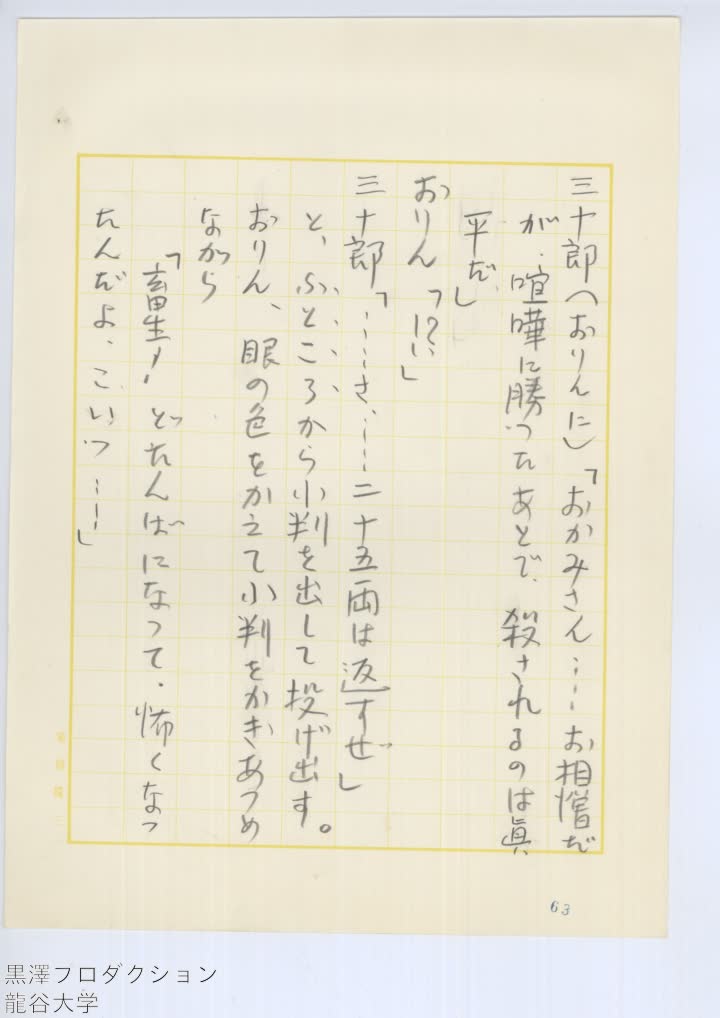 三十郎（おりんに）「おかみさん……お相憎だ
が、喧嘩に勝ったあとで、殺されるのは眞
平だ」
おりん「!?」
三十郎「……さ、……二十五両は返すぜ」
と、ふところから小判を出して投げ出す。
おりん、眼の色をかえて小判をかきあつめ
ながら
「畜生！どたんばになって、怖くなっ
たんだよ、こいつ……」
63
黒澤プロダクション
龍谷大学